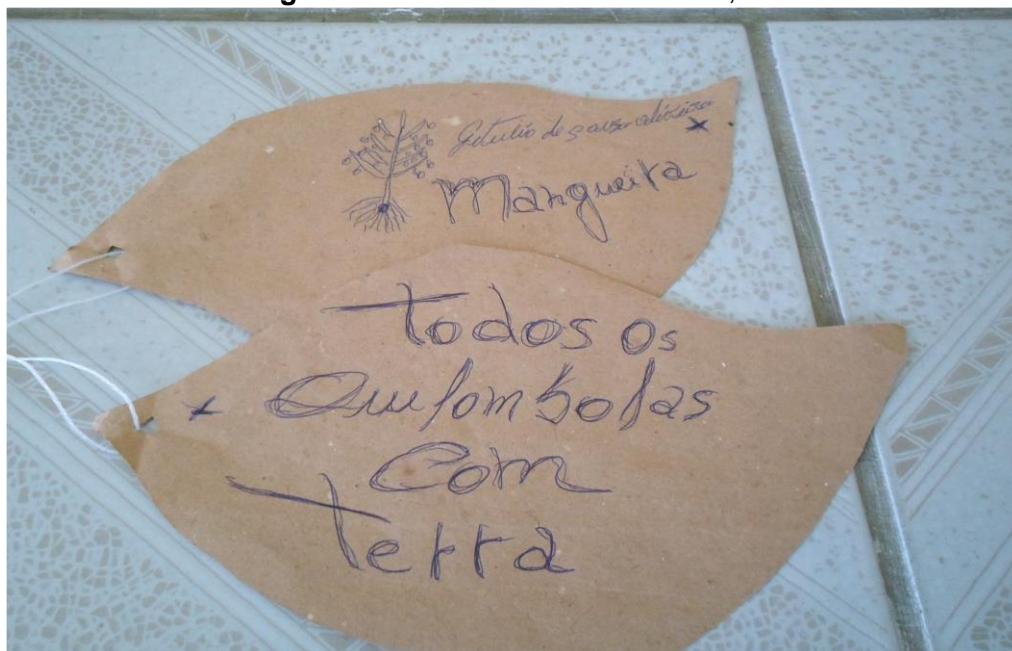 Getulio de souza oliveira
Mangueira
Todos os
Quilombolas
com
terra